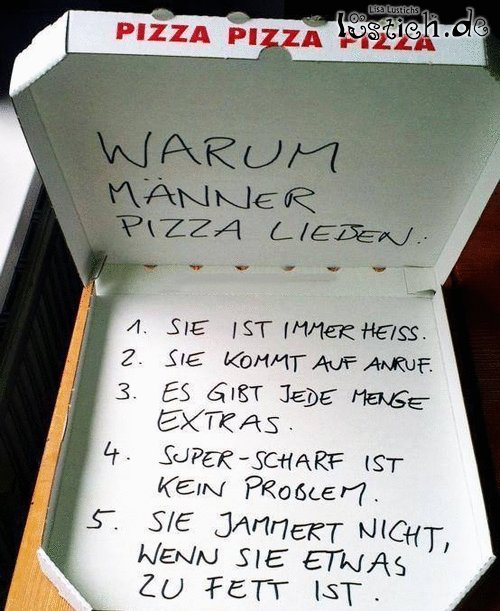 PIZZA PIZZA PIZZA
Lisa Lustichs
lustich.de
WARUM
MÄNNER
PIZZA LIEBEN:
1. SIE IST IMMER HEISS.
2. SIE KOMMT AUF ANRUF.
3. ES GIBT JEDE MENGE
EXTRAS.
4. SUPER-SCHARF IST
KEIN PROBLEM.
5. SIE JAMMERT NICHT,
WENN SIE ETWAS
ZU FETT IST.